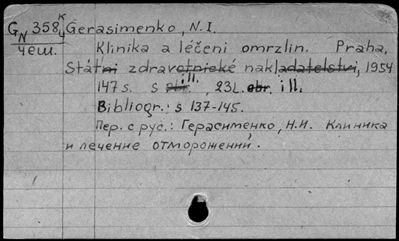 G 358, К Gerasimenko, N.I.
N 4
чеш. Klinika a léčeni omrzlin. Praha,
Státni zdravotnické nakladatelstvi, 1954
147 s. s ill., 23L. obr. i ill.
Bibliogr.: s 137-145.
Пер. с рус.: Герасименко, Н.И. Клиника
и лечение отморожений.